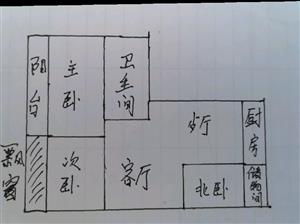 阳台
主卧
卫生间
飘窗
次卧
客厅
歺厅
厨房
北卧
储物间